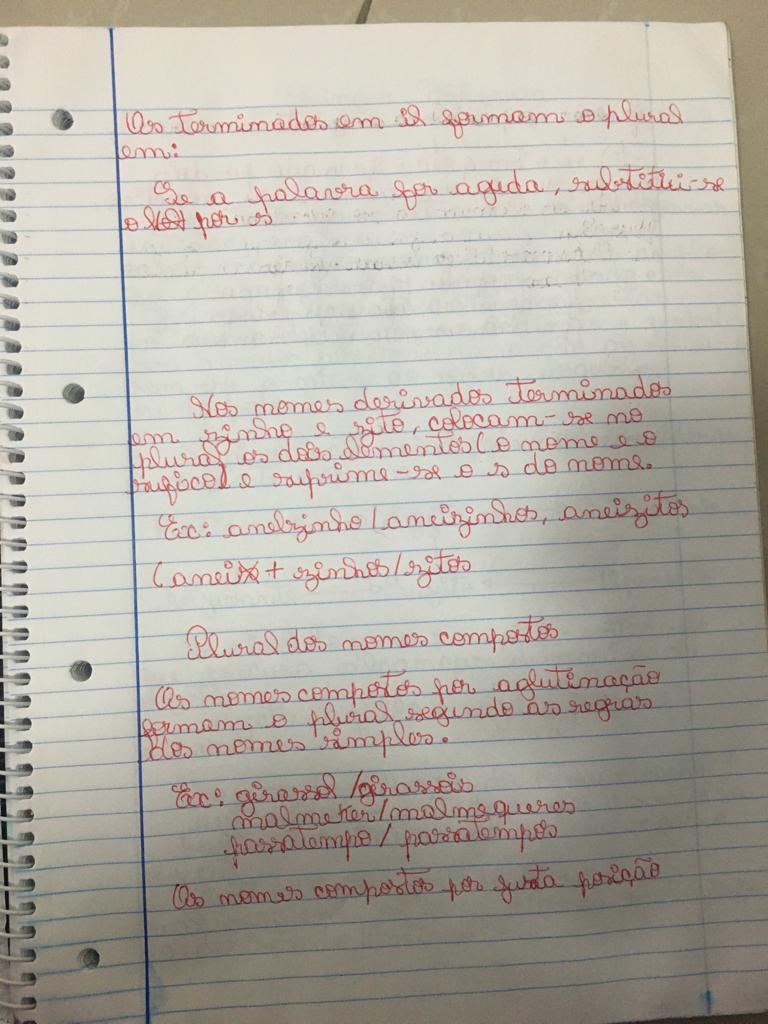 Os terminados em il formam o plural
em:
Se a palavra for aguda, substitui-se
o por s
Nos nomes derivados terminados
em zinho e zito, colocam-se no
plural os dois elementos (o nome e o
sufico) e suprime-se o s do nome.
Ex: anelzinho/aneizinhos, aneizitos
(aneis + zinhos/zitos
Plural dos nomes compostos
Os nomes compostos por aglutinação
formam o plural segundo as regras
dos nomes simples.
Ex: girassol/girassois
malmeker/malmequeres
passatempo/passatempos
Os nomes compostos por justa posição